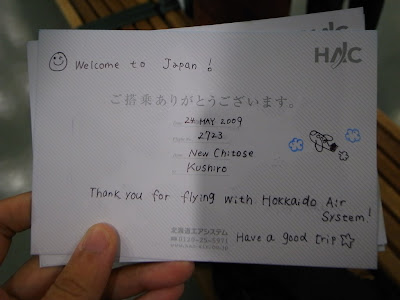 HAC
Welcome to Japan!
ご搭乗ありがとうございます。
24 MAY 2009
2723
New Chitose
Kushiro
Thank you for flying with Hokkaido Air
System!
北海道エアシステム
Have a good trip